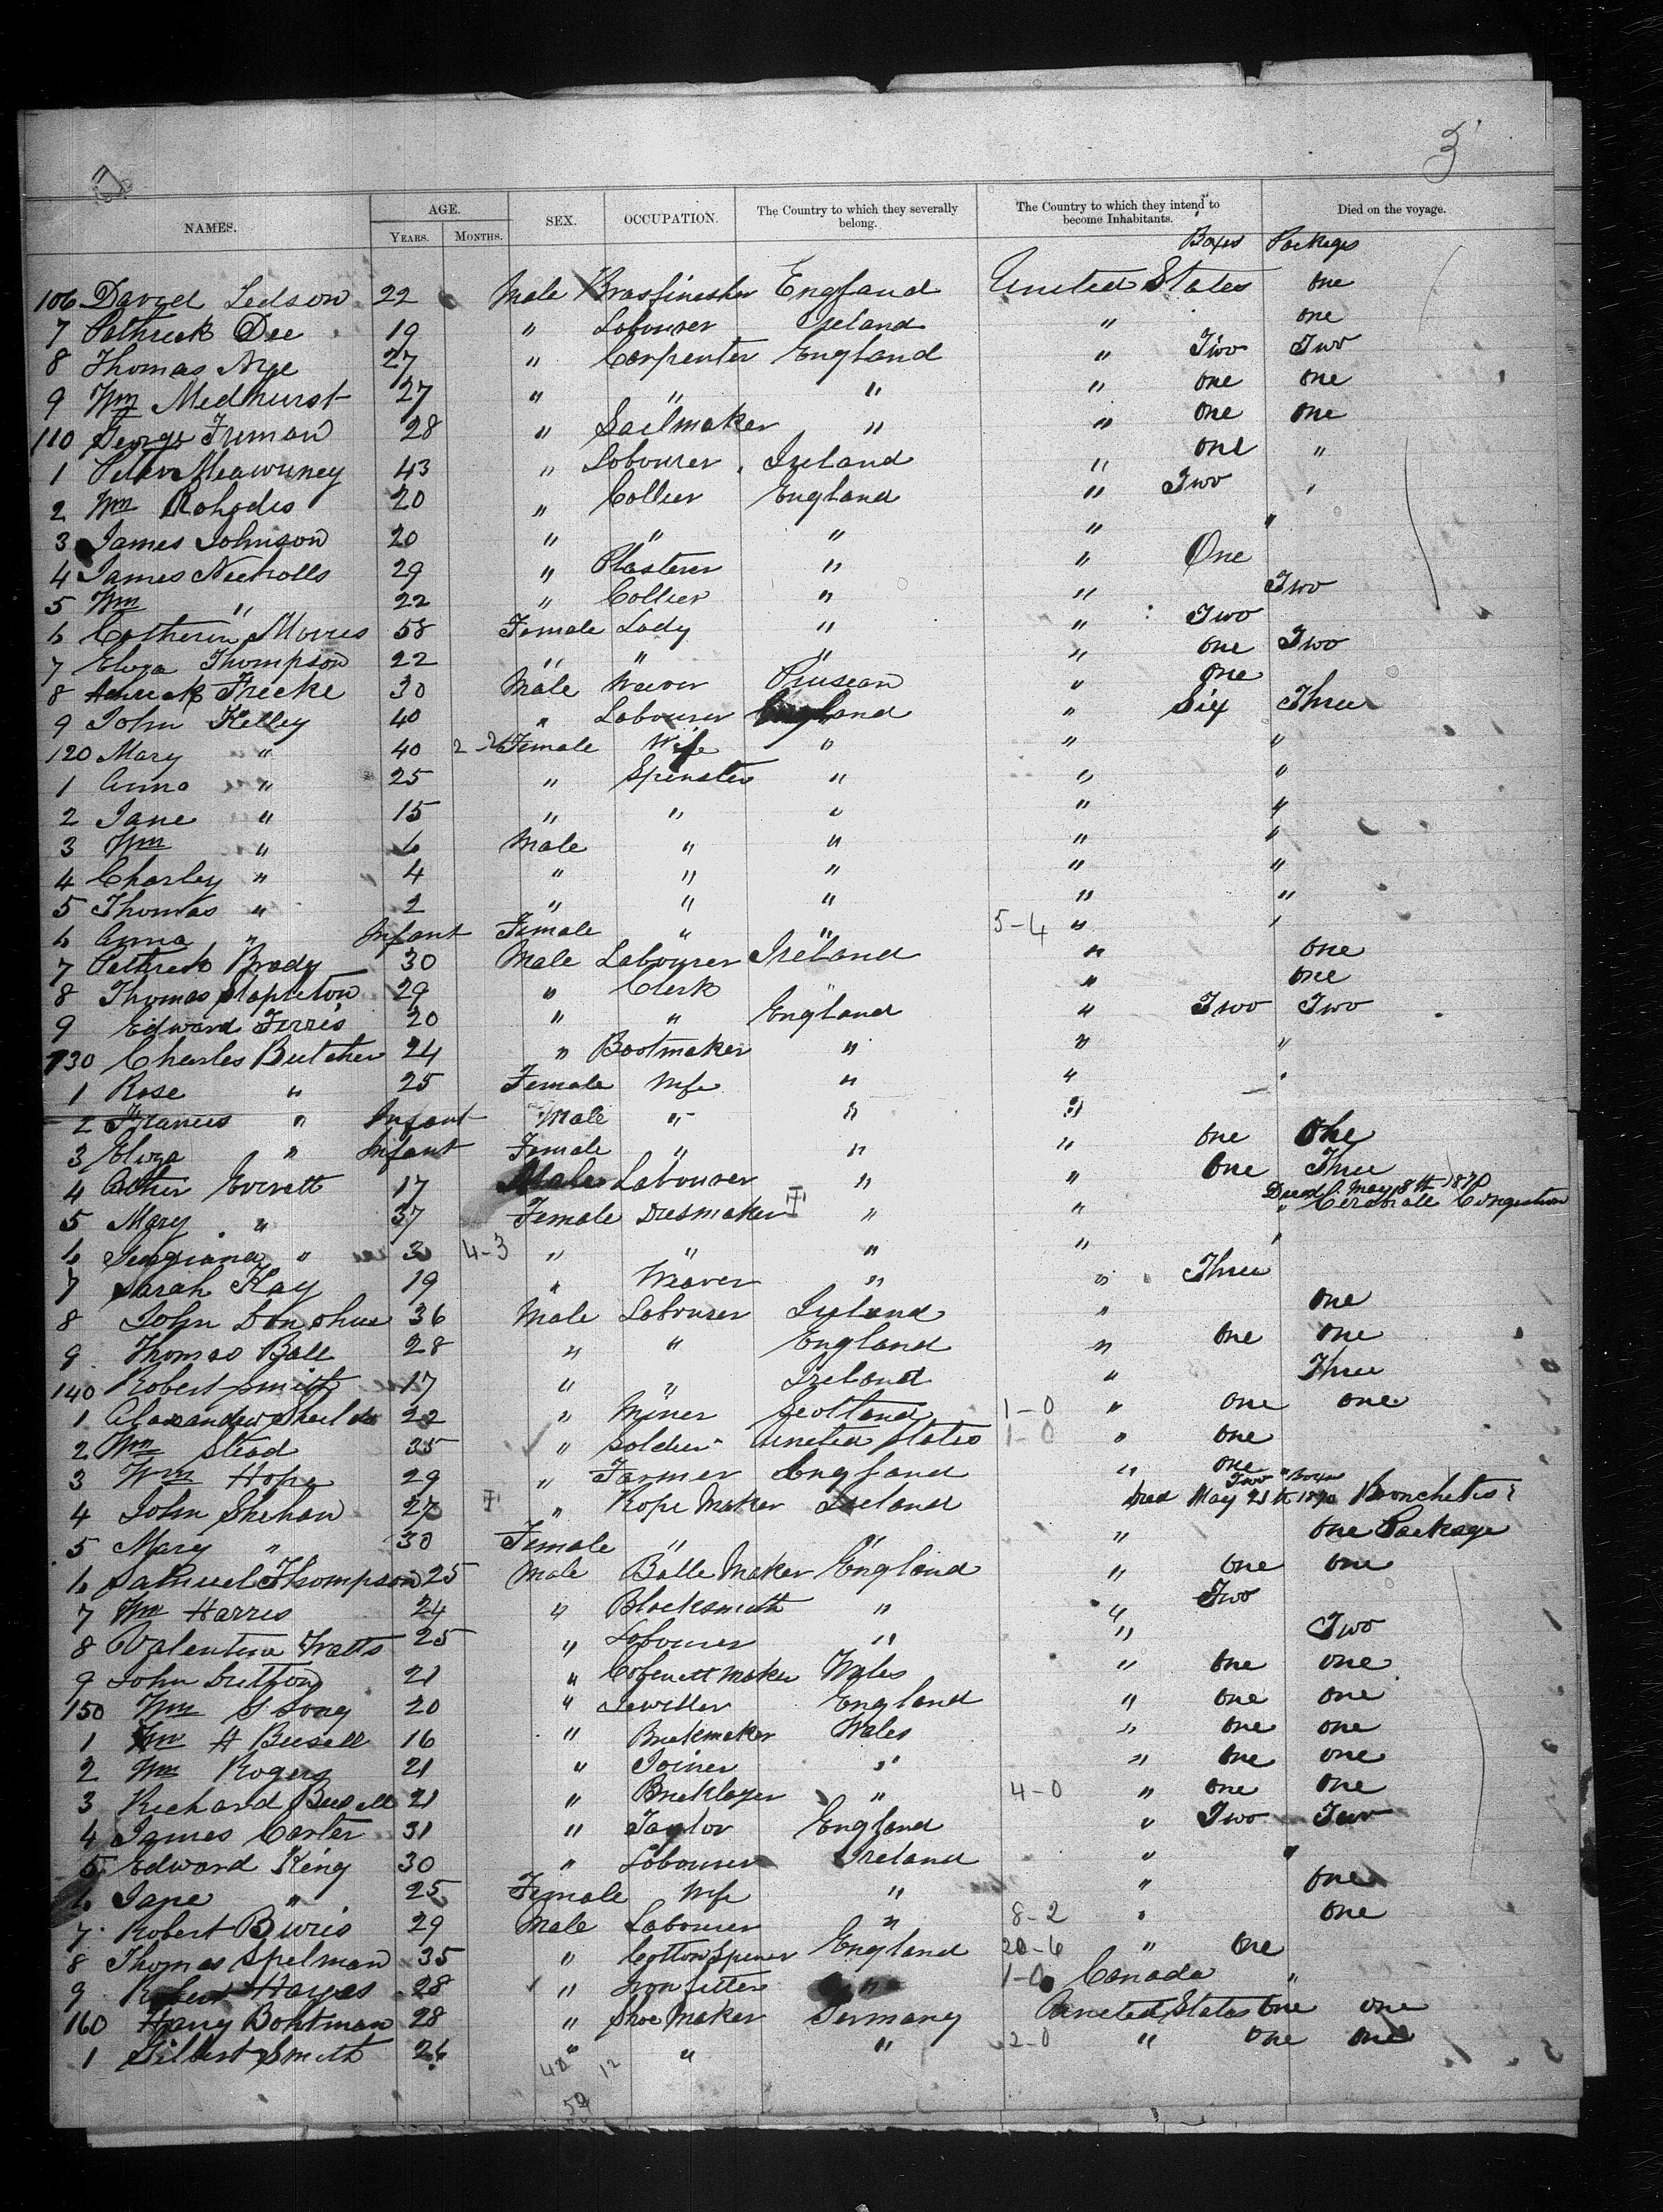 3
NAMES. AGE. SEX. OCCUPATION. The Country to which they severally belong. The Country to which they intend to become Inhabitants. Died on the voyage.
YEARS. MONTHS.
Boxes Packages
106 David Ledson 22 Male Brasfinisher England United States one
7 Pathrick Dee 19 " Labourer Ireland " one
8 Thomas Nye 27 " Carpenter England " Two Two
9 Wm Medhurst 27 " " " " one one
110 George Freman 28 " Sailmaker " " one one
1 Peter 43 " Labourer Ireland " one "
2 Wm Rohodes 20 " Collier England " Two "
3 James Johnson 20 " " " " "
4 James Nicholls 29 " Plasterer " " One
5 Wm " 22 " Collier " " Two
6 Catherin Morris 58 Female Lady " " Two
7 Eliza Thompson 22 " " " " one Two
8 Frecke 30 Male Weiver Prusean " one
9 John Kelley 40 " Labourer England " Six Three
120 Mary " 40 2-2 Female Wife " " "
1 Anna " 25 " Spinster " " "
2 Jane " 15 " " " " "
3 Wm " 6 Male " " " "
4 Charley " 4 " " " " "
5 Thomas " 2 " " " " "
6 Anna " Infant Female " " 5-4 " "
7 Pathrick Brady 30 Male Labourer Ireland " one
8 Thomas Stapleton 29 " Clerk " " one
9 Edward Ferris 20 " " England " Two Two
130 Charles Butcher 24 " Bootmaker " " "
1 Rose " 25 Female Wife " " "
2 Francis " Infant Male " " "
3 Eliza " Infant Female " " " one one
4 Everett 17 Male Labourer " " One Three
Died May 8th 1870
5 Mary " 37 Female Dresmaker " " " Cerebrale Congestion
6 " 3 4-3 " " " " "
7 Sarah Kay 19 " Weaver " " Three
8 John Donohue 36 Male Labourer Ireland " one
9 Thomas Ball 28 " " England " one one
140 Robert Smith 17 " " Ireland " Three
1 Alaxandew Sheilds 22 " Miner Scotland 1-0 " one one
2 Wm Stead 35 " Soldier United States 1-0 " one
3 Wm Hope 29 " Farmer England " one
Two " Boxes
4 John Shehan 27 " Rope Maker Ireland Died May 21st 1870 Bronchetis
5 Mary " 30 Female " " " one Package
6 Samuel Thompson 25 Male Balle Maker England " one one
7 Wm Harris 24 " Blacksmith " " Two
8 Valentine Watts 25 " Labourer " " Two
9 John 21 " Cabenett maker Wales " one one
150 Wm S Long 20 " Jewiller England " one one
1 Wm H Bussell 16 " Brickmaker Wales " one one
2 Wm Rogers 21 " Joiner " " one one
3 Richard Bussell 21 " Bricklayer " 4-0 " one one
4 James Carter 31 " Taylor England " Two Two
5 Edward King 30 " Labourer Ireland " "
6 Jane " 25 Female Wife " " one
7 Robert Buris 29 Male Labourer " 8-2 " one
8 Thomas Spelman 35 " Cotton Spiner England 20-6 " one
9 Robert Hayes 28 " Iron fitter " 1-0 Canada "
160 Harry Bohtman 28 " Shoe Maker Germany United States One one
1 Gilbert Smith 26 " " " 2-0 " One one
48 12
59